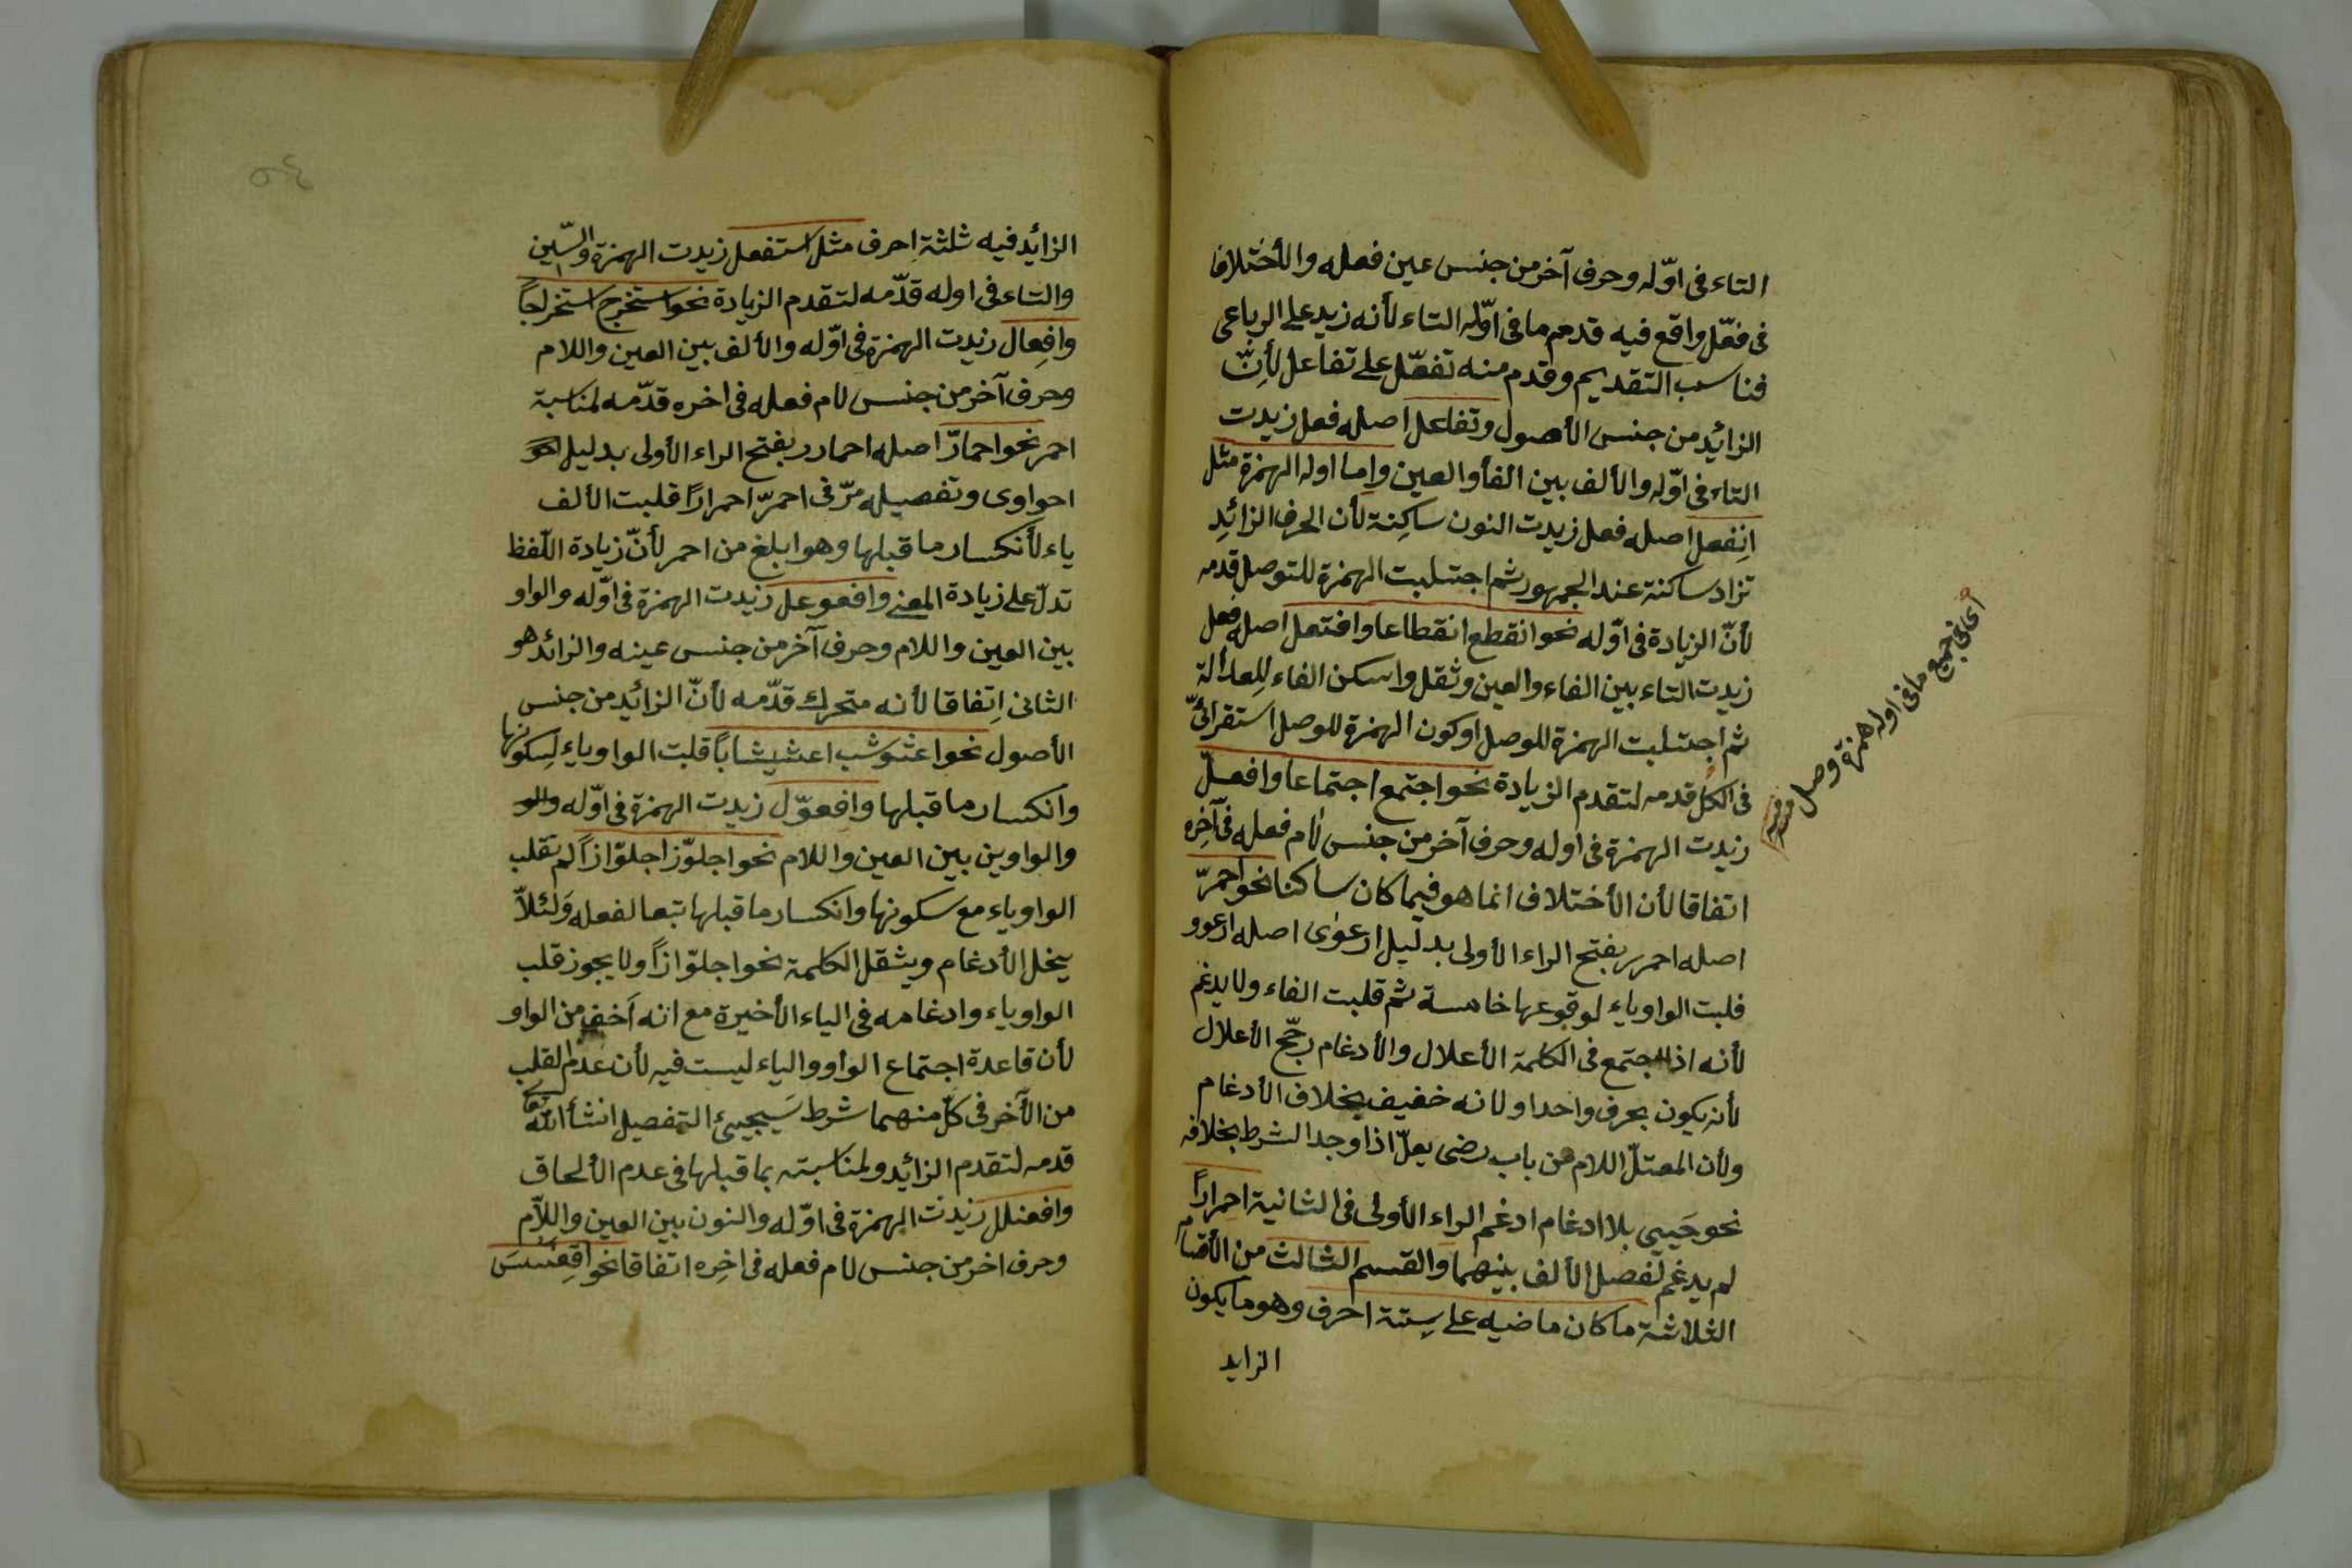 التاء فى اوّله وحرف آخر من جنس عين فعله والأختلاف
فى فعّل واقع فيه قدم ما فى اوّله التاء لأنه زيد على الرباعى
فناسب التقديم وقدم منه تفعّل على تفاعل لأنّ
الزائد من جنس الأصول وتفاعل اصله فعل زيدت
التاء فى اوّله والألف بين الفأ والعين واما اوله الهمزة مثل
اِنفعل اصله فعل زيدت النون ساكِنة لأن الحرف الزائدِ
تزاد ساكنة عند الجمهور ثم اجتلبت الهمزة للتوصل قدمه
لأنّ الزيادة فى اوّله نحو انقطع انقطاعا وافتعل اصله فعل
زيدت التاء بين الفاء والعين وثقل واسكن الفاء للِعدالة
ثم اجتلبت الهمزة للوصل اوكون الهمزة للوصل استقرائىّ
فى الكل قدمه لتقدم الزيادة نحو اجتمع اجتماعا وافعلّ
زيدت الهمزة فى اوله وحرف آخر من جنس لام فعله فى آخِره
اتفاقا لأن الأختلاف انما هو فيما كان ساكنا نحو احمرّ
اصله احمرر بفتح الراء الأولى بدليل ارعوٰى اصله ارعوو
قلبت الواو ياء لوقوعها خامسة ثم قلبت الفاء ولا يدغم
لأنه اذا اجتمع فى الكلمة الأعلال والأدغام رجّح الأعلال
لأنه يكون بحرف واحد اولانه خفيف بخلاف الأدغام
ولأن المعتلّ اللام من باب رضى يعلّ اذا وجد الشرط بخلافه
نحو حَيِىى بلا ادغام ادغم الراء الأولى فى الثانية احمراراً
لم يدغم لفصل الألف بينهما والقسم الثالث من الأقسام
الثلاثة ما كان ماضيه على ستة احرف وهو ما يكون
الزايد
اى فى جميع ما فى اوله همزة وصل
الزائد فيه ثلثة احرف مثل استفعل زيدت الهمزة والسّين
والتاء فى اوله قدّمه لتقدم الزيادة نحو استخرج استخراجاً
وافعِال زيدت الهمزة فى اوّله والألف بين العين واللام
وحرف آخر من جنس لام فعله فى اخره قدّمه لمناسبة
احمر نحو احمارّ اصله احمارر بفتح الراء الأولى بدليل
احواوى وتفصيله مرّ فى احمرّ احمراراً قلبت الألف
ياء لأنكسار ما قبلها وهو ابلغ من احمر لأنّ زيادة اللّفظ
تدلّ على زيادة المعنى وافعوعل زيدت الهمزة فى اوّله والواو
بين العين واللام وحرف آخر من جنس عينه والزائد هو
الثانى اِتفاقا لأنه متحرك قدّمه لأنّ الزائد من جنس
الأصول نحو اعشوشب اعشيشاباً قلبت الواو ياء لسكونها
وانكسار ما قبلها وافعوّل زيدت الهمزة فى اوّله والو
والواوين بين العين واللام نحو اجلوّز اجلوّازاً لم تقلب
الواو ياء مع سكونها وانكسار ما قبلها تبعا لفعله وَلئلاّ
يخل الأدغام ويثقل الكلمة نحو اجلوّازاً ولا يجوز قلب
الواو ياء وادغامه فى الياء الأخيرة مع انه اَخف من الواو
لأن قاعدة اجتماع الواو والياء ليست فيه لأن عدم القلب
من الآخر فى كلّ منهما شرط سَيجيئ التفصيل انشأ الله تعا
قدمه لتقدم الزائد ولمناسبته بما قبلها فى عدم الألحاق
وافعنلل زيدت الهمزة فى اوّله والنون بين العين واللاّم
وحرف اخر من جنس لام فعله فى اخِره اتفاقا نحو اقعنسس